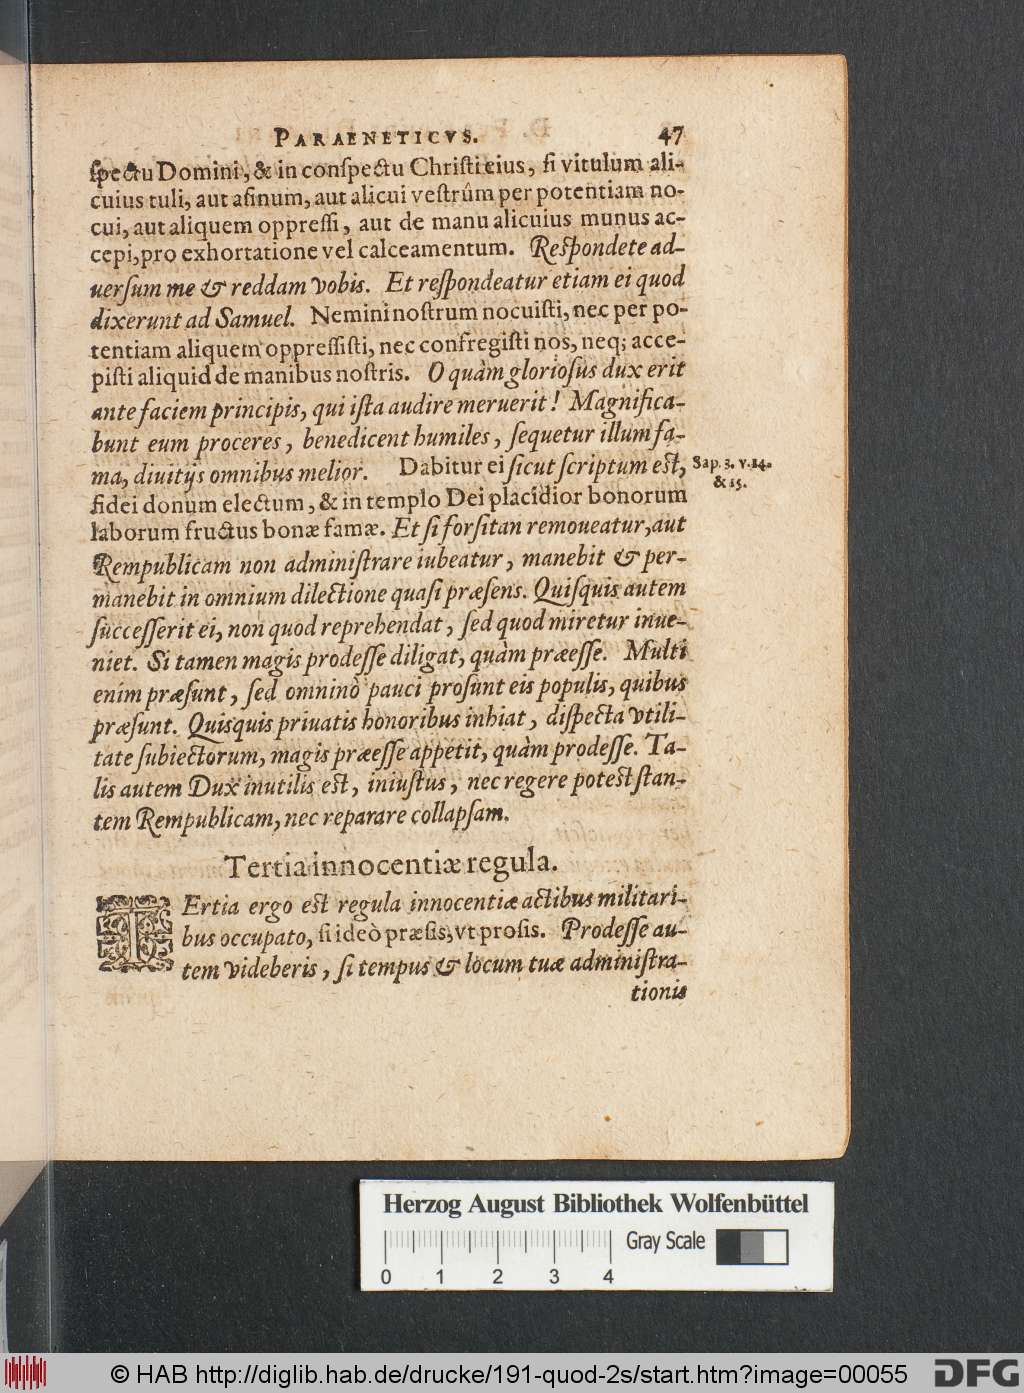 PARAENETICVS. 47
ſpectu Domini, & in conſpectu Chriſti eius, ſi vitulum ali-
cuius tuli, aut aſinum, aut alicui veſtrûm per potentiam no-
cui, aut aliquem oppreſſi, aut de manu alicuius munus ac-
cepi, pro exhortatione vel calceamentum. Reſpondete ad-
uerſum me & reddam vobis. Et reſpondeatur etiam ei quod
dixerunt ad Samuel. Nemini noſtrum nocuiſti, nec per po-
tentiam aliquem oppreſſiſti, nec confregiſti nos, neq; acce-
piſti aliquid de manibus noſtris. O quàm glorioſus dux erit
ante faciem principis, qui iſta audire meruerit! Magnifica-
bunt eum proceres, benedicent humiles, ſequetur illum fa-
ma, diuitijs omnibus melior. Dabitur ei ſicut ſcriptum eſt,
Sap. 3. v. 14.
& 15.
fidei donum electum, & in templo Dei placidior bonorum
laborum fructus bonæ famæ. Et ſi forſitan remoueatur, aut
Rempublicam non adminiſtrare iubeatur, manebit & per-
manebit in omnium dilectione quaſi præſens. Quiſquis autem
ſucceſſerit ei, non quod reprehendat, ſed quod miretur inue-
niet. Si tamen magis prodeſſe diligat, quàm præeſſe. Multi
enim præſunt, ſed omninò pauci proſunt eis populis, quibus
præſunt. Quisquis priuatis honoribus inhiat, diſpecta vtili-
tate ſubiectorum, magis præeſſe appetit, quàm prodeſſe. Ta-
lis autem Dux inutilis eſt, iniuſtus, nec regere poteſt ſtan-
tem Rempublicam, nec reparare collapſam.
Tertia innocentiæ regula.
TErtia ergo eſt regula innocentiæ actibus militari-
bus occupato, ſi ideò præſis, vt proſis. Prodeſſe au-
tem videberis, ſi tempus & locum tuæ adminiſtra-
tionis
Herzog August Bibliothek Wolfenbüttel
Gray Scale
0 1 2 3 4
© HAB http://diglib.hab.de/drucke/191-quod-2s/start.htm?image=00055
DFG